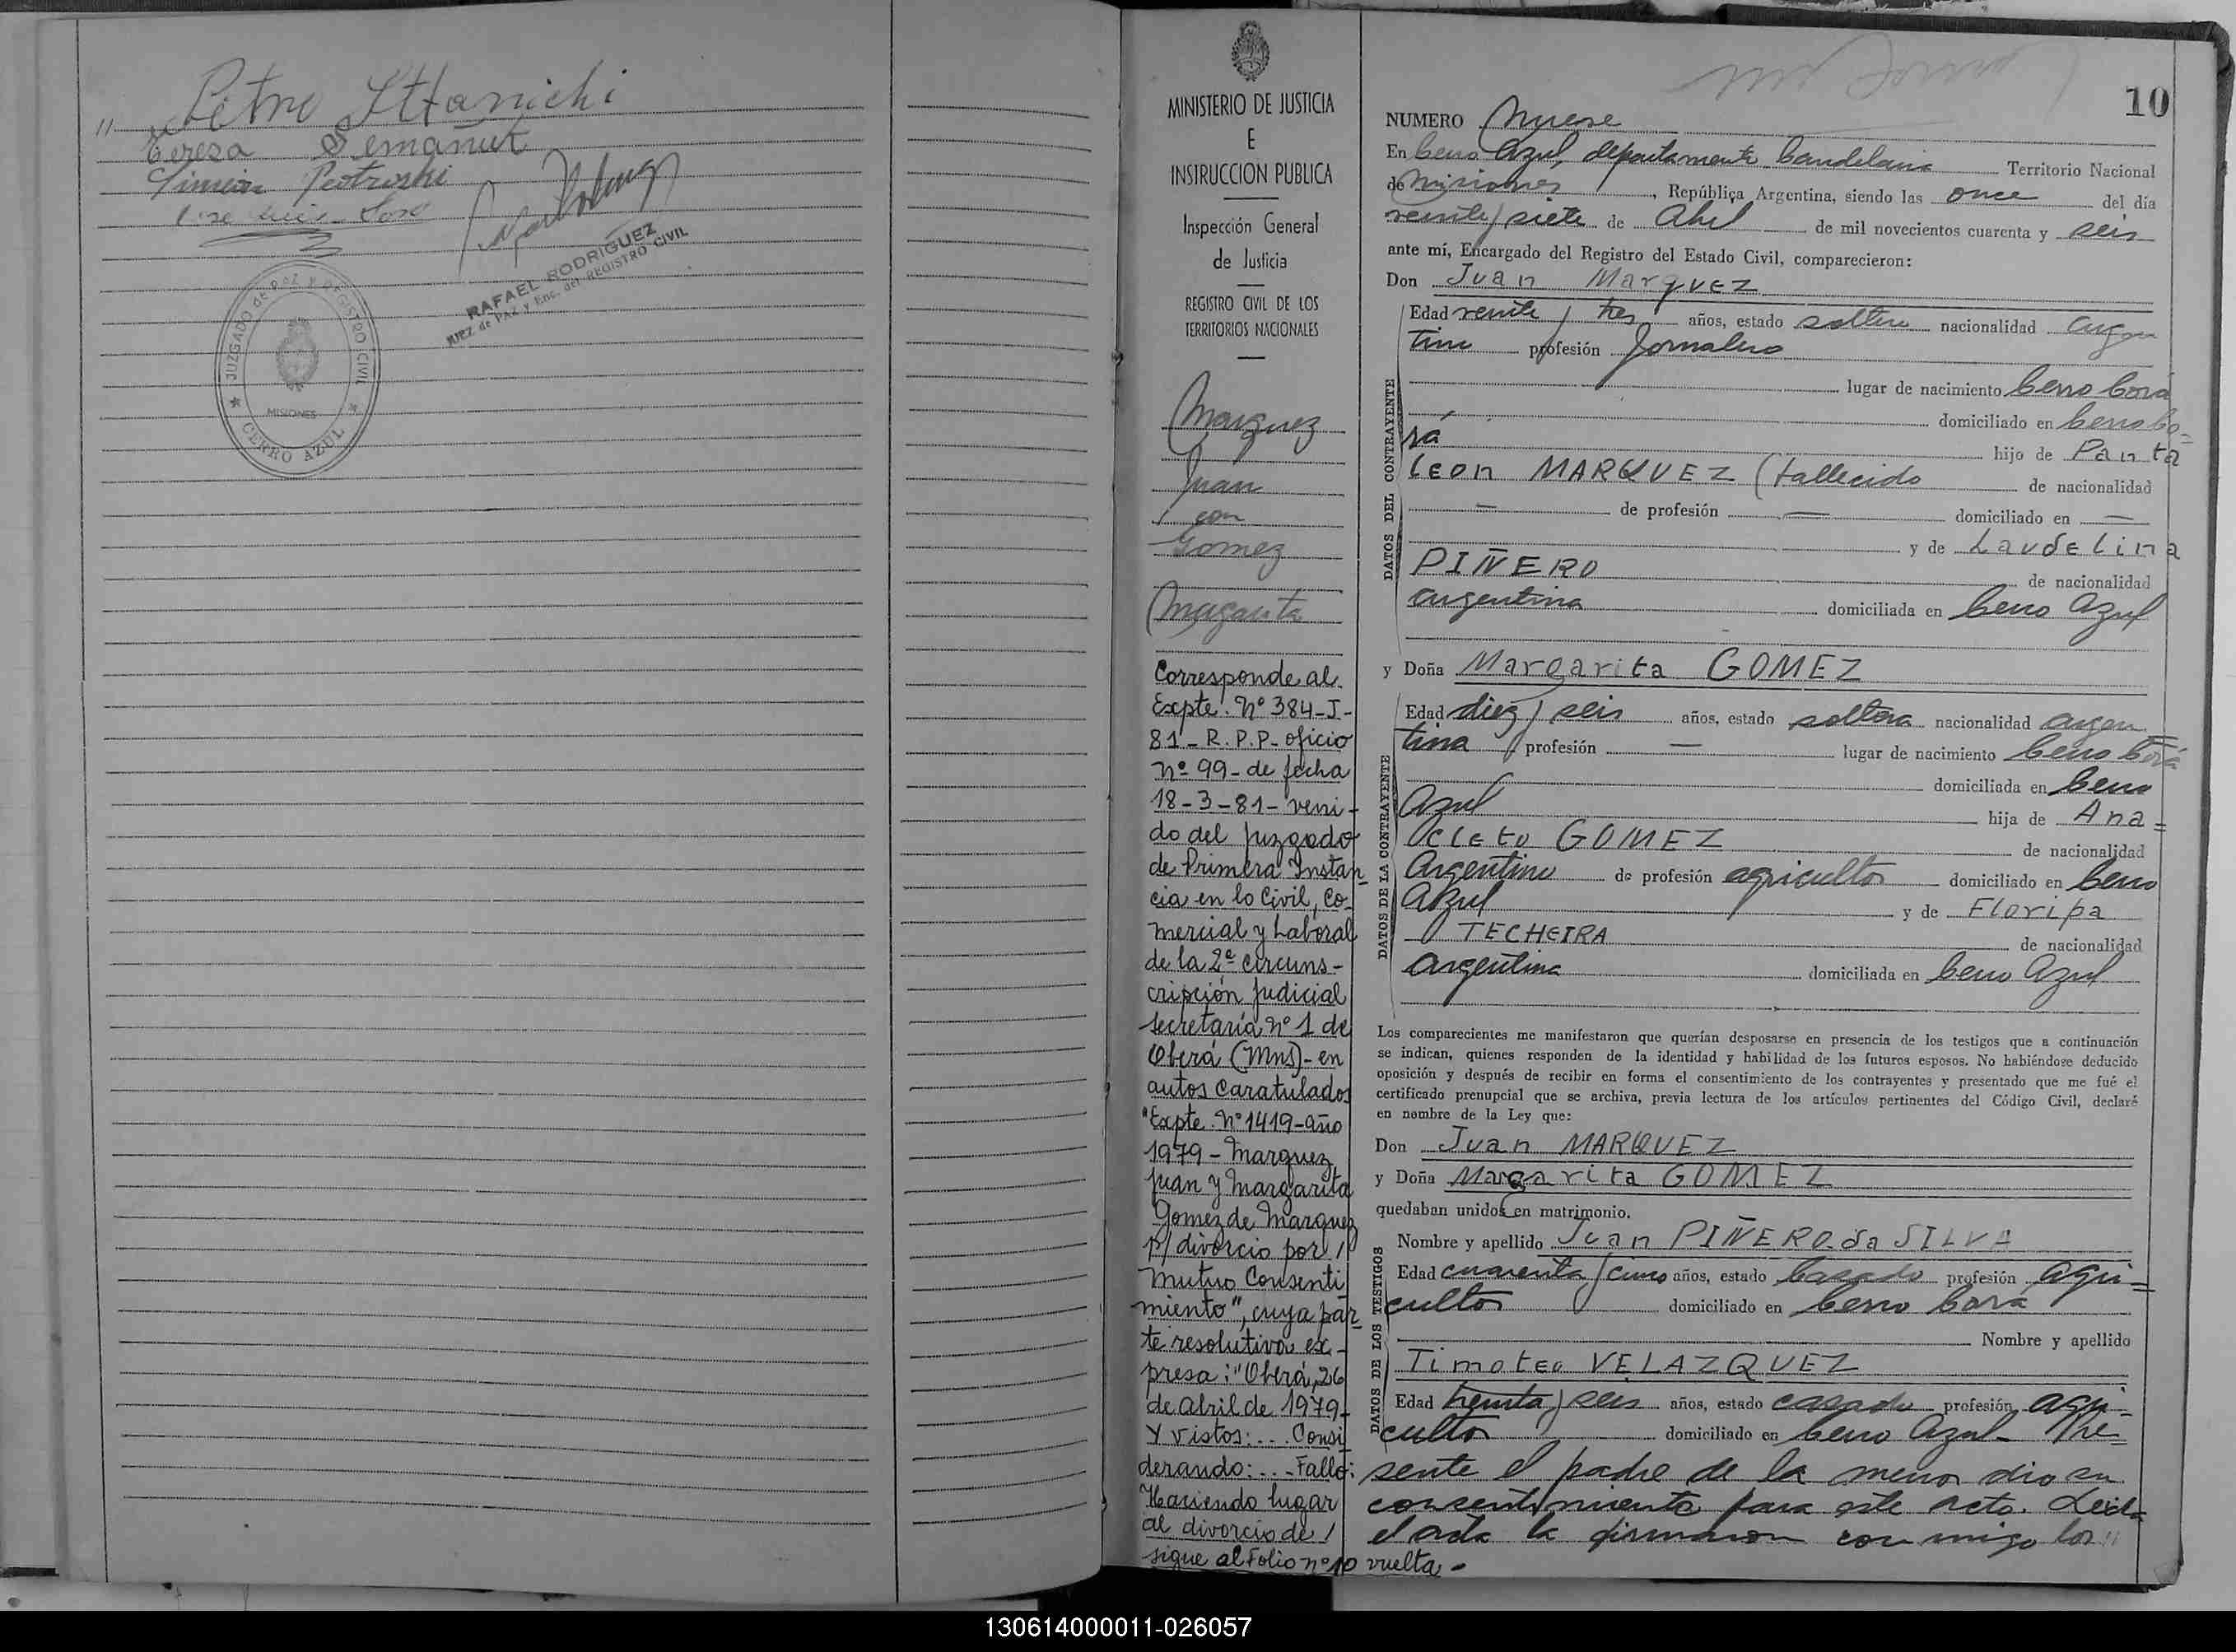 Petro
Tereza Semañuk
Simion Piotroski
RAFAEL RODRIGUEZ
JUEZ de PAZ y Enc. del REGISTRO CIVIL
JUZGADO de PAZ Y REGISTRO CIVIL
MISIONES
CERRO AZUL
MINISTERIO DE JUSTICIA
E
INSTRUCCION PUBLICA
Inspección General
de Justicia
REGISTRO CIVIL DE LOS
TERRITORIOS NACIONALES
Marquez
Juan
con
Gomez
Margarita
Corresponde al
Expte. Nº 384-J-
81-R.P.P-oficio
nº 99-de fecha
18-3-81-veni-
do del Juzgado
de Primera Instan-
cia en lo Civil, Co-
mercial y Laboral
de la 2ª circuns-
cripción Judicial
secretaría nº 1 de
Oberá (Mns)-en
autos caratulados
"Expte. Nº 1419-año
1979-Marquez
Juan y Margarita
Gomez de Marquez
p/ divorcio por /
Mutuo Consenti
miento", cuya par-
te resolutiva ex-
presa: "Oberá, 26
de abril de 1979-
Y vistos:... Consi
derando:...-Fallo:
Haciendo lugar
al divorcio de /
sigue al Folio nº 10 vuelta-
10
NUMERO Nueve
En Cerro Azul, departamento Candelaria Territorio Nacional
de Misiones, República Argentina, siendo las once del día
veinte y siete de Abril de mil novecientos cuarenta y seis
ante mí, Encargado del Registro del Estado Civil, comparecieron:
Don Juan Marquez
DATOS DEL CONTRAYENTE
Edad veinte y tres años, estado soltero nacionalidad argen
tino profesión Jornalero
lugar de nacimiento Cerro Corá
domiciliado en Cerro Co=
rá
hijo de Panta
leon MARQUEZ (fallecido de nacionalidad
— de profesión — domiciliado en —
y de Laudelina
PIÑERO de nacionalidad
argentina domiciliada en Cerro Azul
y Doña Margarita GOMEZ
DATOS DE LA CONTRAYENTE
Edad diez y seis años, estado soltera nacionalidad argen=
tina profesión — lugar de nacimiento Cerro Corá
domiciliada en Cerro
Azul hija de Ana=
cleto GOMEZ de nacionalidad
Argentino de profesión agricultor domiciliado en Cerro
Azul y de Floripa
TECHEIRA de nacionalidad
argentina domiciliada en Cerro Azul
Los comparecientes me manifestaron que querían desposarse en presencia de los testigos que a continuación
se indican, quienes responden de la identidad y habilidad de los futuros esposos. No habiéndose deducido
oposición y después de recibir en forma el consentimiento de los contrayentes y presentado que me fué el
certificado prenupcial que se archiva, previa lectura de los artículos pertinentes del Código Civil, declaré
en nombre de la Ley que:
Don Juan MARQUEZ
y Doña Margarita GOMEZ
quedaban unidos en matrimonio.
DATOS DE LOS TESTIGOS
Nombre y apellido Juan PIÑERO da SILVA
Edad cuarenta y cinco años, estado Casado profesión agri=
cultor domiciliado en Cerro Corá
Nombre y apellido
Timoteo VELAZQUEZ
Edad treinta y seis años, estado casado profesión agri-
cultor domiciliado en Cerro Azul- Pre=
sente el padre de la menor dio su
consentimiento para este acto. Leída
el acta la firmaron con migo los //
130614000011-026057